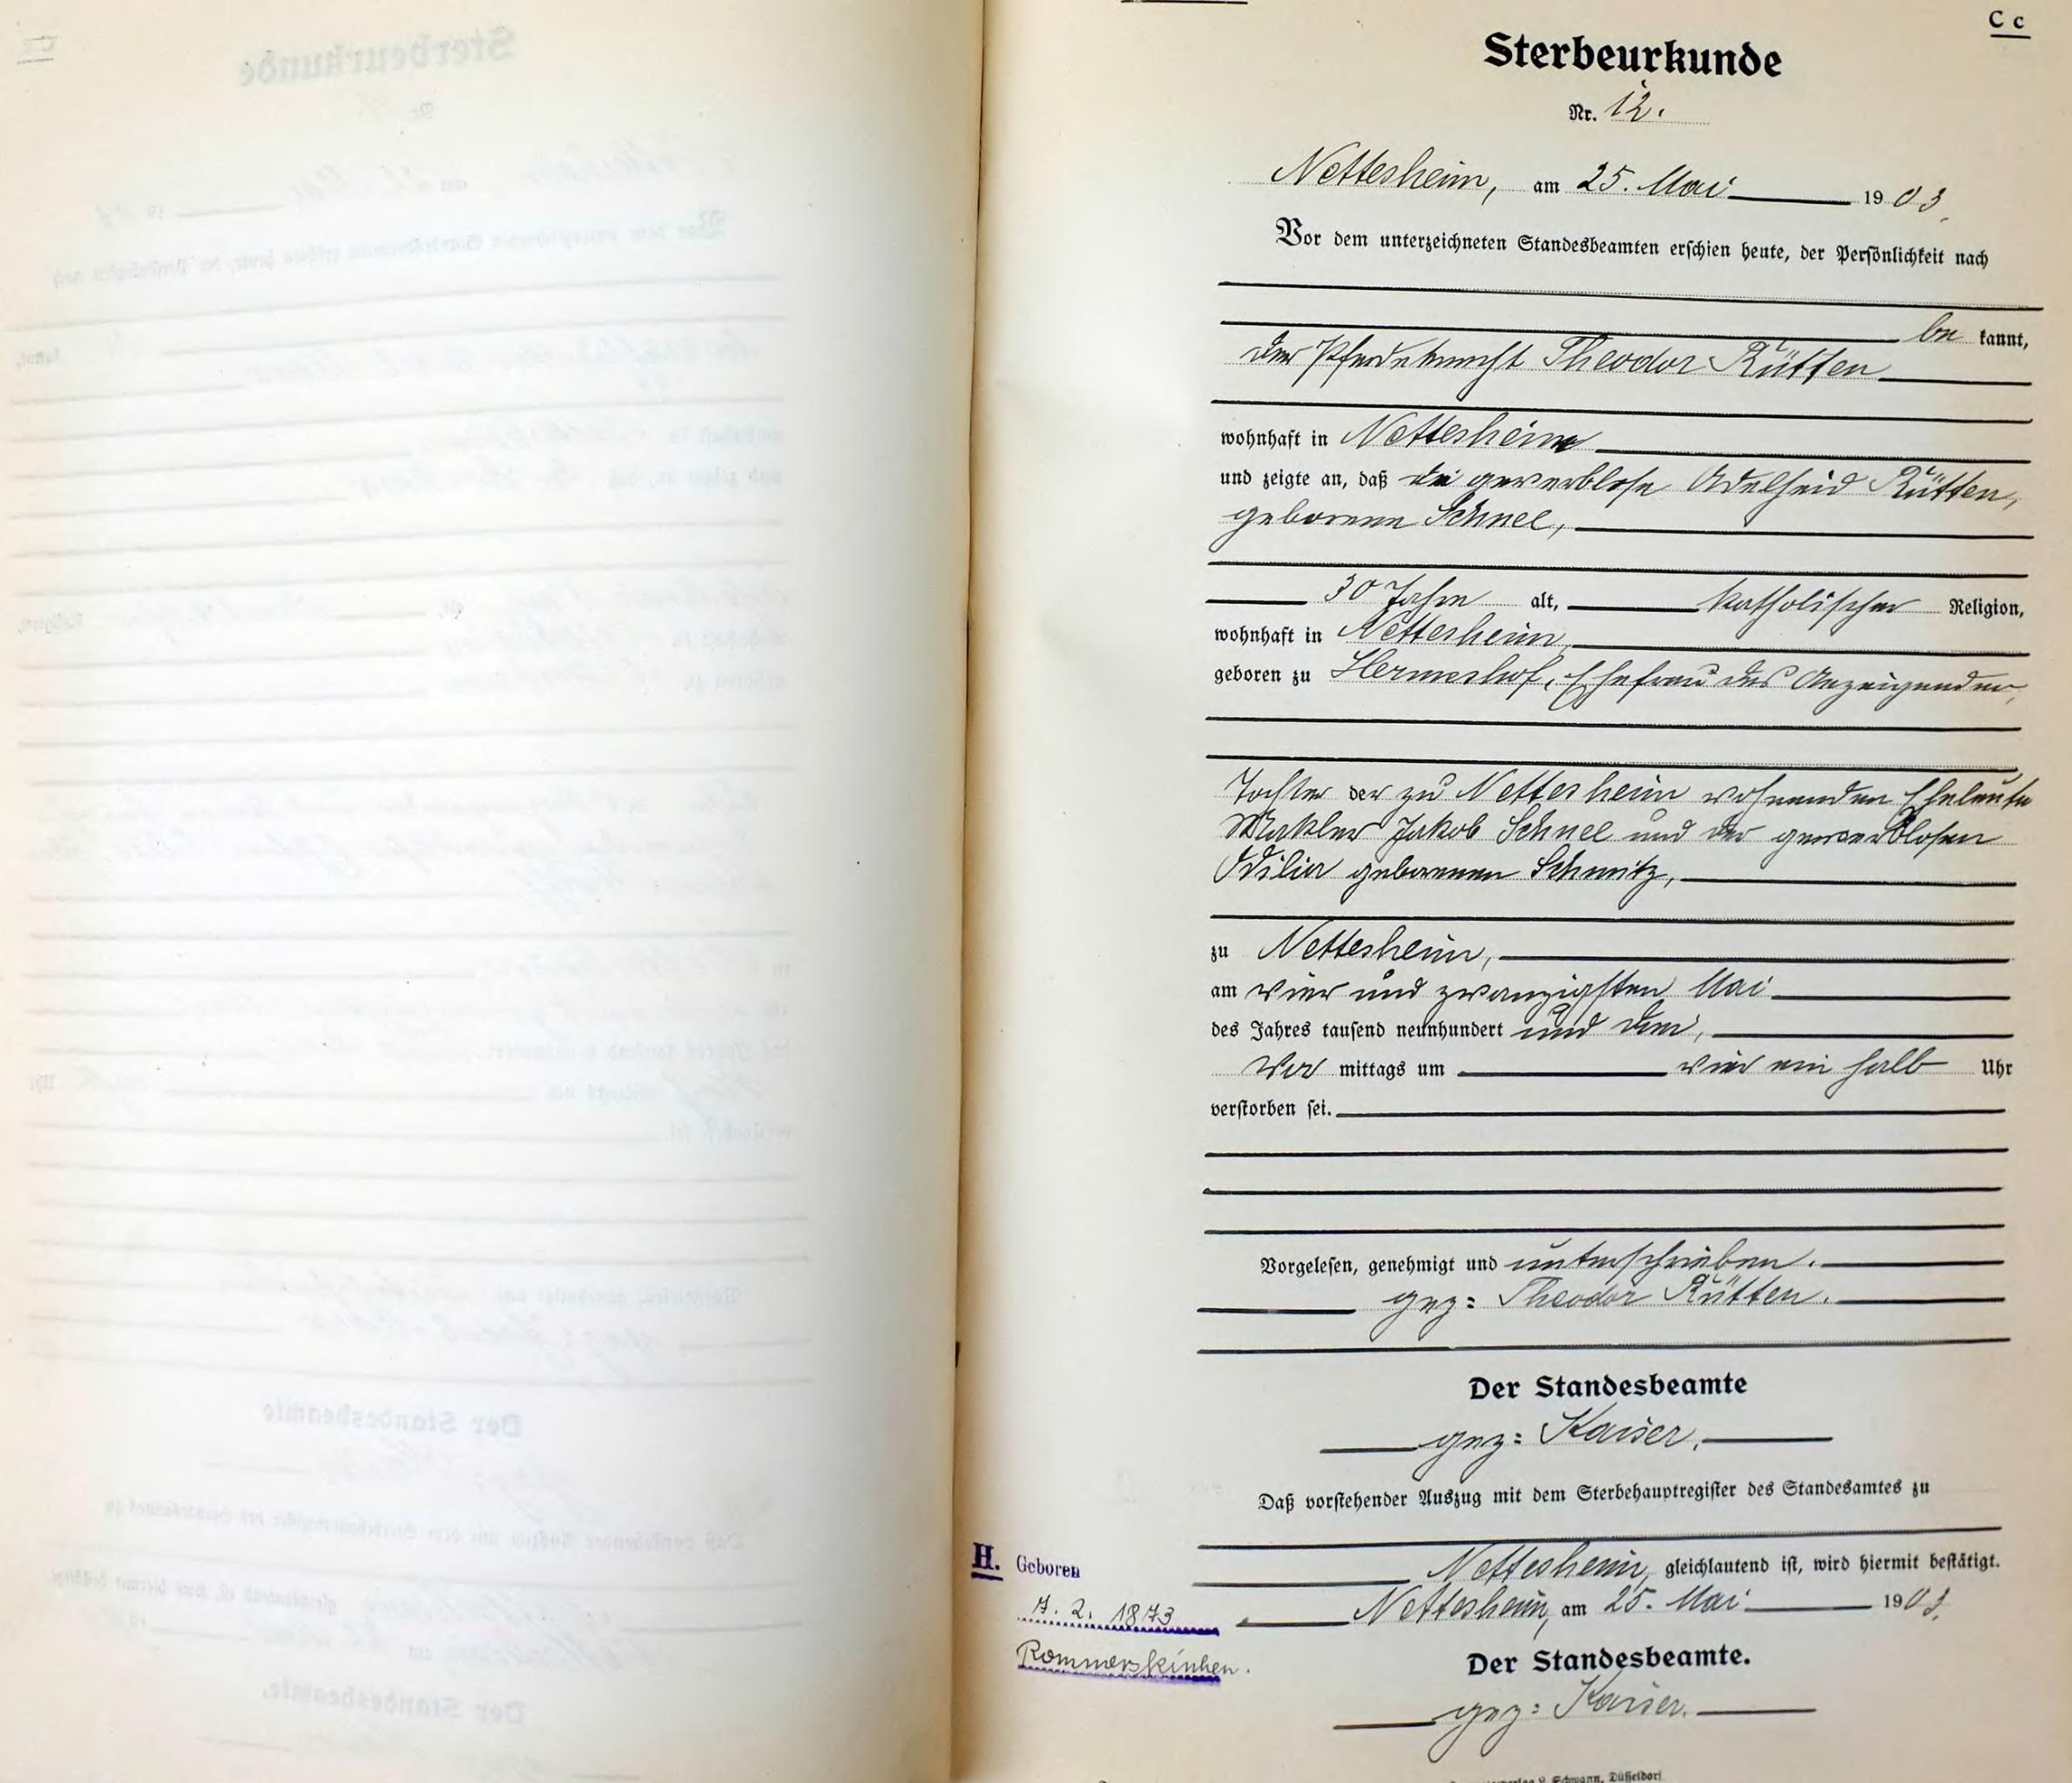 C c
Sterbeurkunde
Nr. 12.
Nettesheim, am 25. Mai 1903.
Vor dem unterzeichneten Standesbeamten erschien heute, der Persönlichkeit nach
be kannt,
der Pferdeknecht Theodor Rütten
wohnhaft in Nettesheim
und zeigte an, daß die gewerblose Adelheid Rütten,
geborene Schnel,
30 Jahre alt, katholischer Religion,
wohnhaft in Nettesheim,
geboren zu Hermeshof, Ehefrau des Anzeigenden,
Tochter der zu Nettesheim wohnenden Eheleute
Makler Jakob Schnel und der gewerblosen
Odilia geborenen Schmitz,
zu Nettesheim,
am vier und zwanzigsten Mai
des Jahres tausend neunhundert und drei,
Vor mittags um vier ein halb Uhr
verstorben sei.
Vorgelesen, genehmigt und unterschrieben.
gez: Theodor Rütten.
Der Standesbeamte
gez: Kaiser.
Daß vorstehender Auszug mit dem Sterbehauptregister des Standesamtes zu
Nettesheim, gleichlautend ist, wird hiermit bestätigt.
Nettesheim, am 25. Mai 1903.
Der Standesbeamte.
gez: Kaiser.
H. Geboren
7. 2. 1873
Rommerskirchen.
Schwann, Düsseldorf